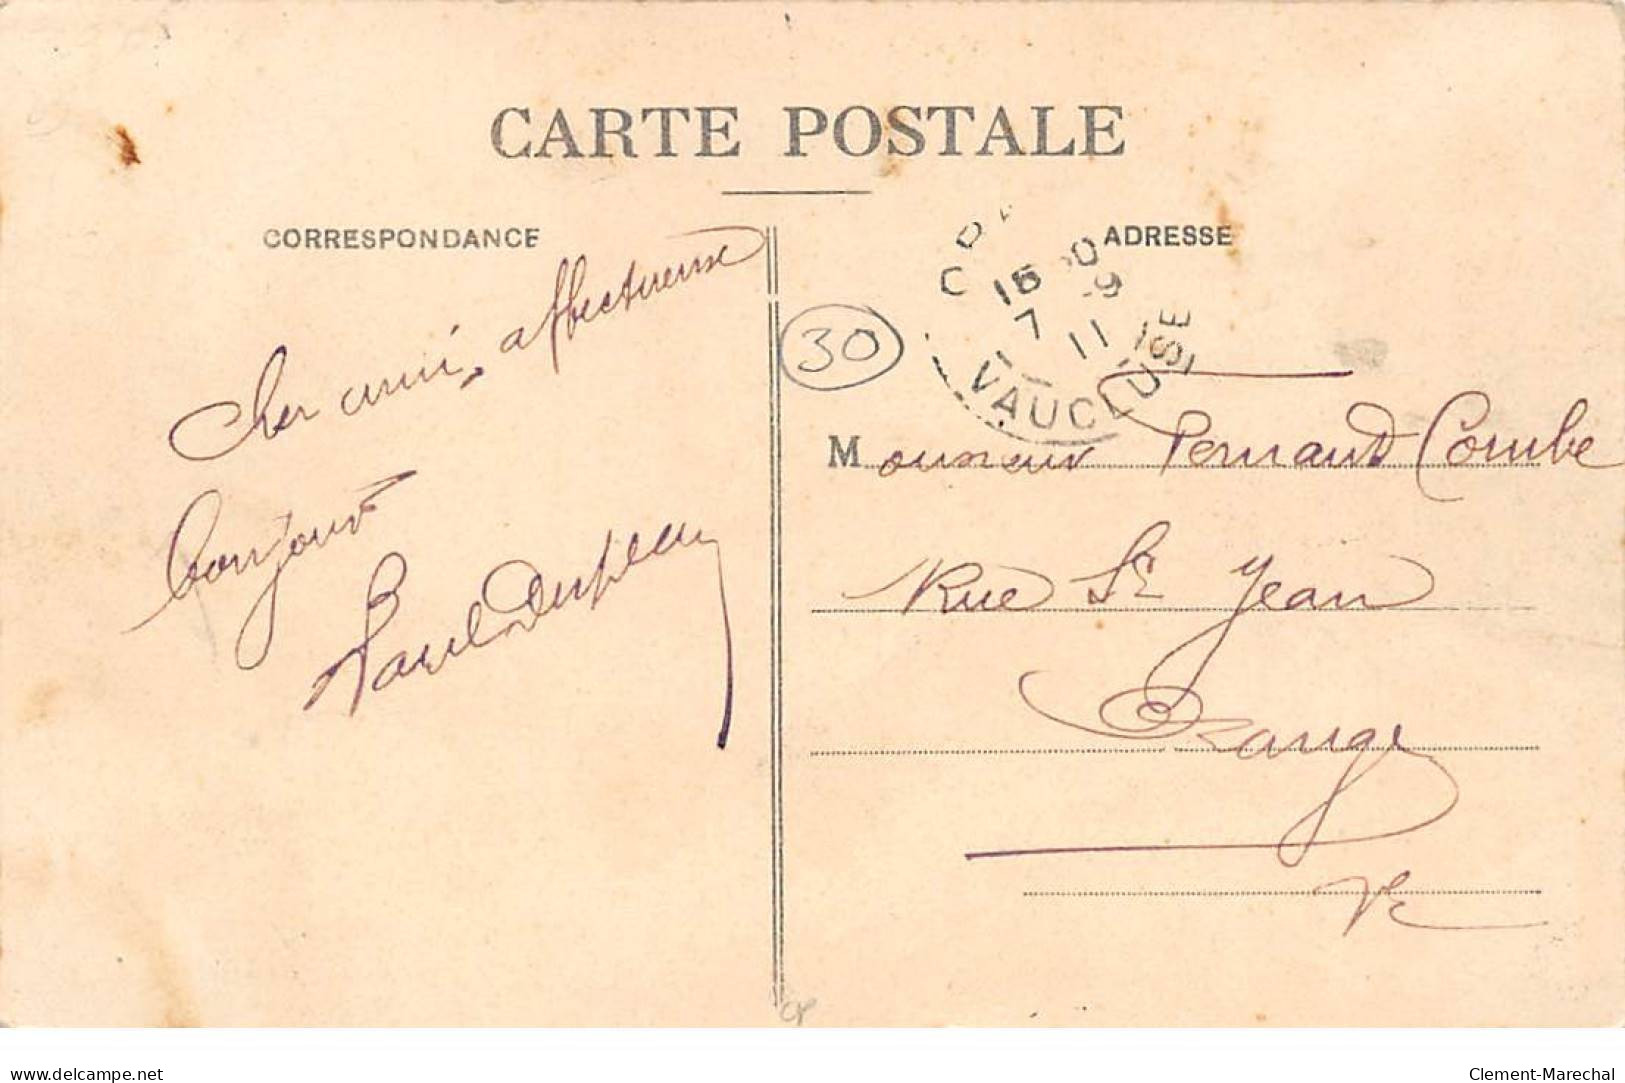 CARTE POSTALE
CORRESPONDANCE
Cher ami, affectueux
bonjour
Paul
ADRESSE
15 30
7 -9
11
VAUCLUSE
30
Monsieur Fernand Combe
Rue St Jean
Orange
Vse
www.delcampe.net
Clement-Marechal